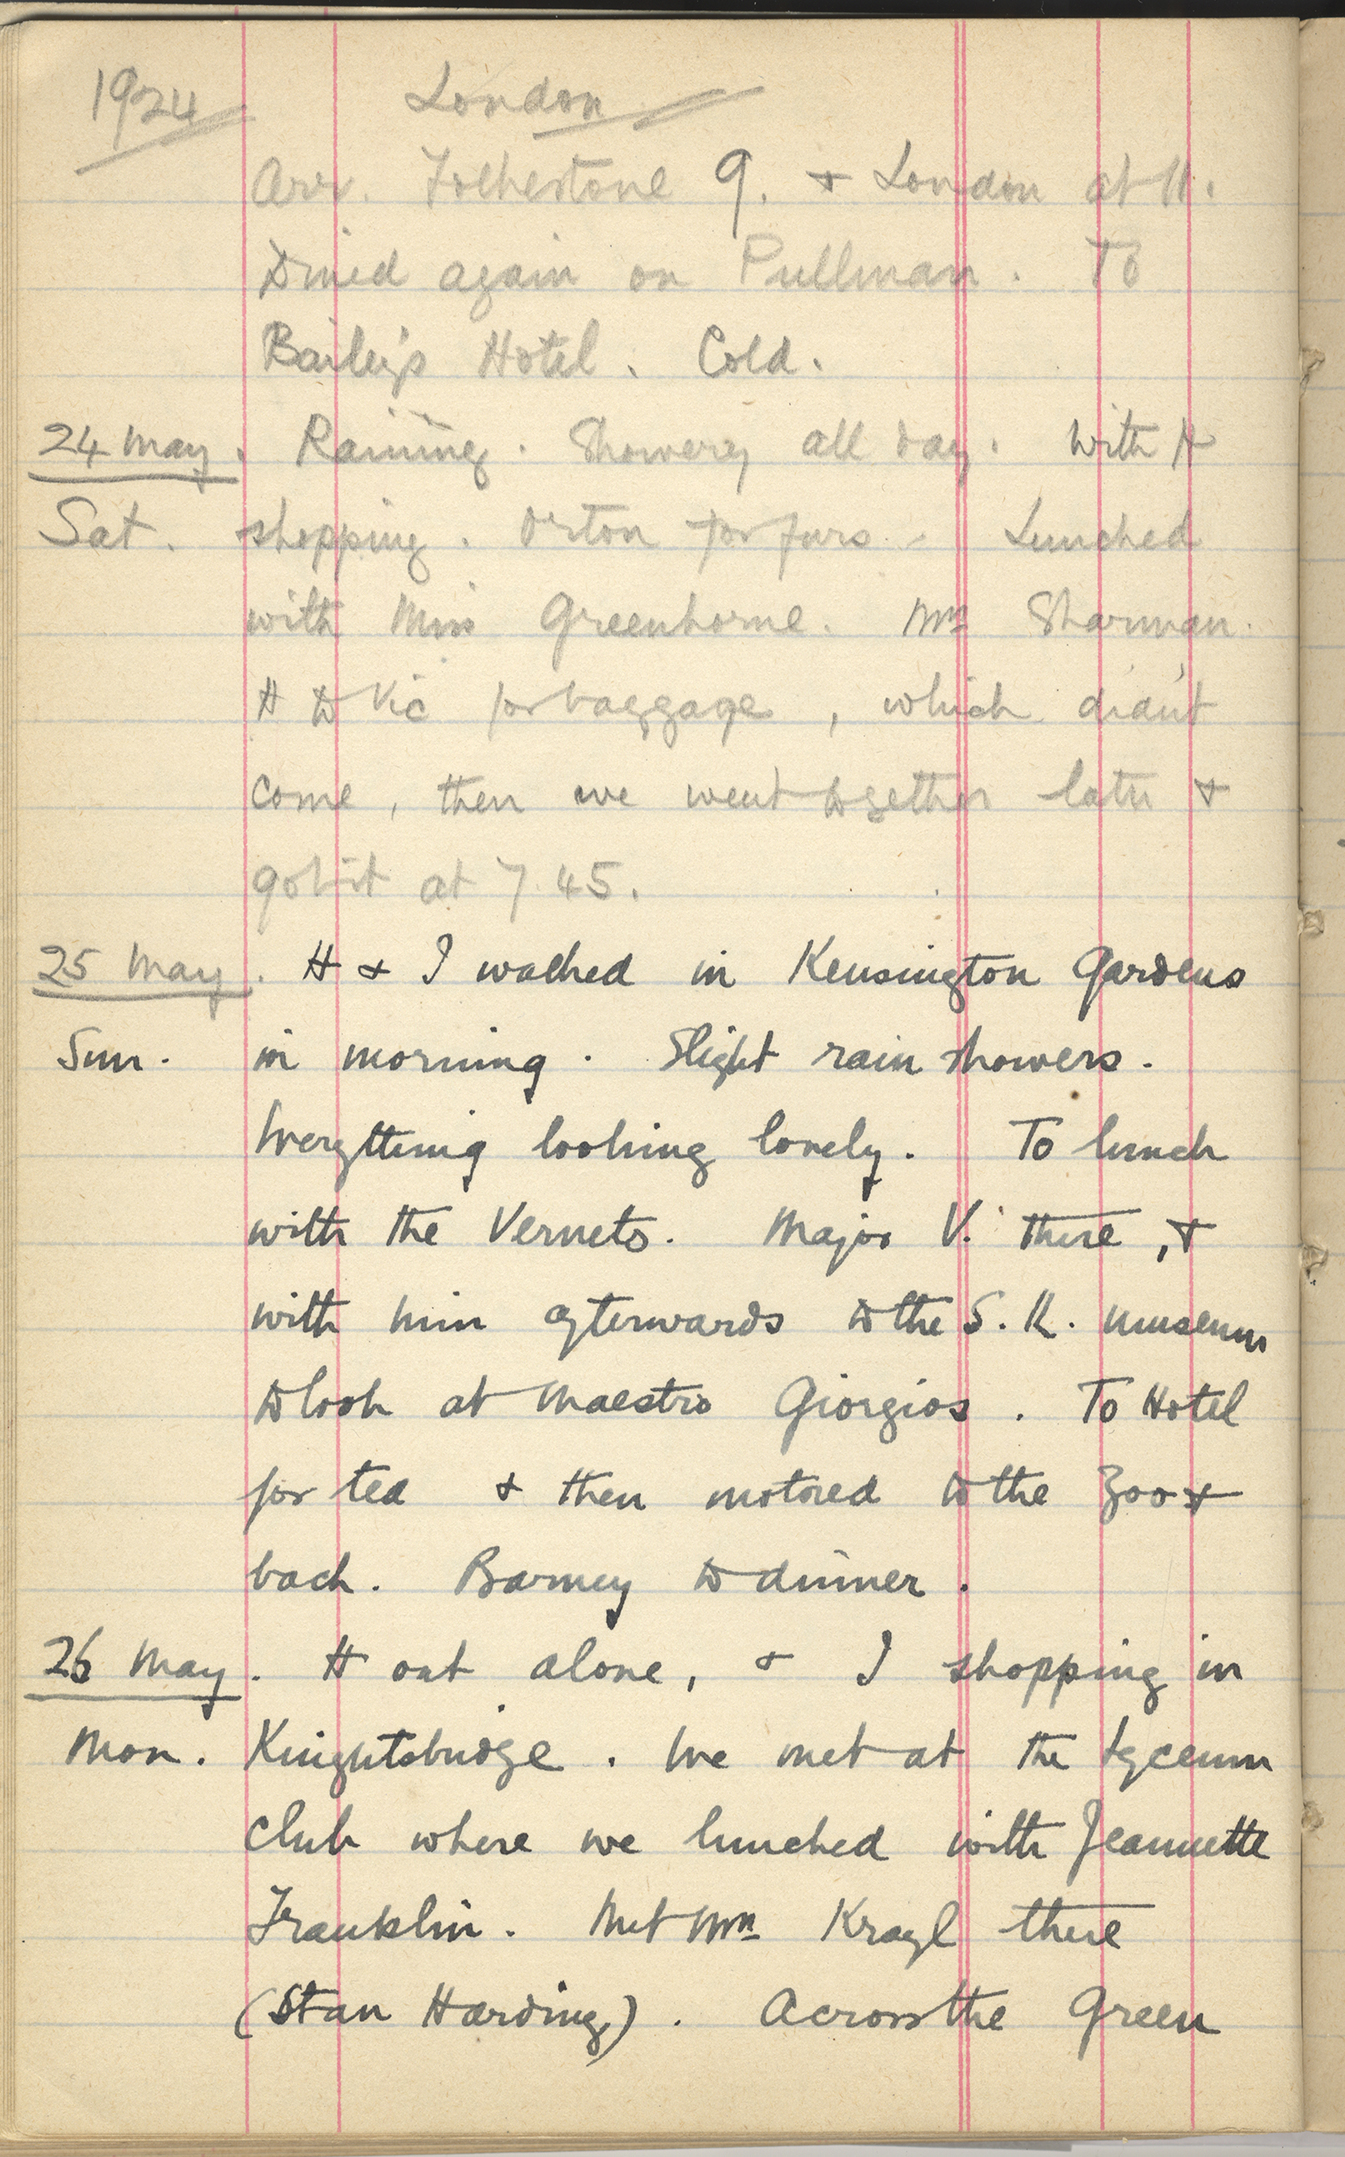 1924 London
Arr. Folkestone 9. + London at 11.
Dined again on Pullman. To
Bailey's Hotel. Cold.
24 May. Raining. Showery all day. With H
Sat. shopping. Orton for furs - Lunched
with Miss Greenhorne. Mrs Sharman.
H to Vic for baggage, which didn't
come, then we went together later +
got it at 7.45.
25 May. H + I walked in Kensington Gardens
Sun. in morning. Slight rain showers.
Everything looking lovely. To lunch
with the Vernets. Major V. there, +
with him afterwards to the S.K. museum
to look at Maestro Giorgios. To Hotel
for tea + then motored to the Zoo +
back. Barney to dinner.
26 May. H out alone, + I shopping in
Mon. Knightsbridge. We met at the Lyceum
Club where we lunched with Jeannette
Franklin. Met Mrs Krayl there
(Stan Harding). Across the Green